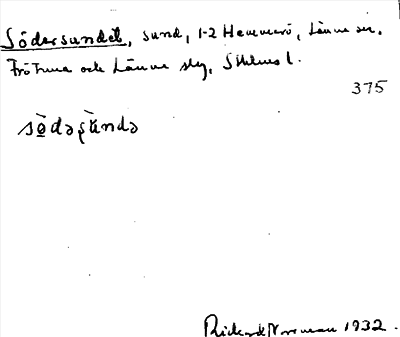 Södersundet, sund, 1-2 Hammarö, Länna sn.
Frötuna och Länna slg, Sthlms l.
375
sö̀dəʂùndə
Rickard Norrman 1932.